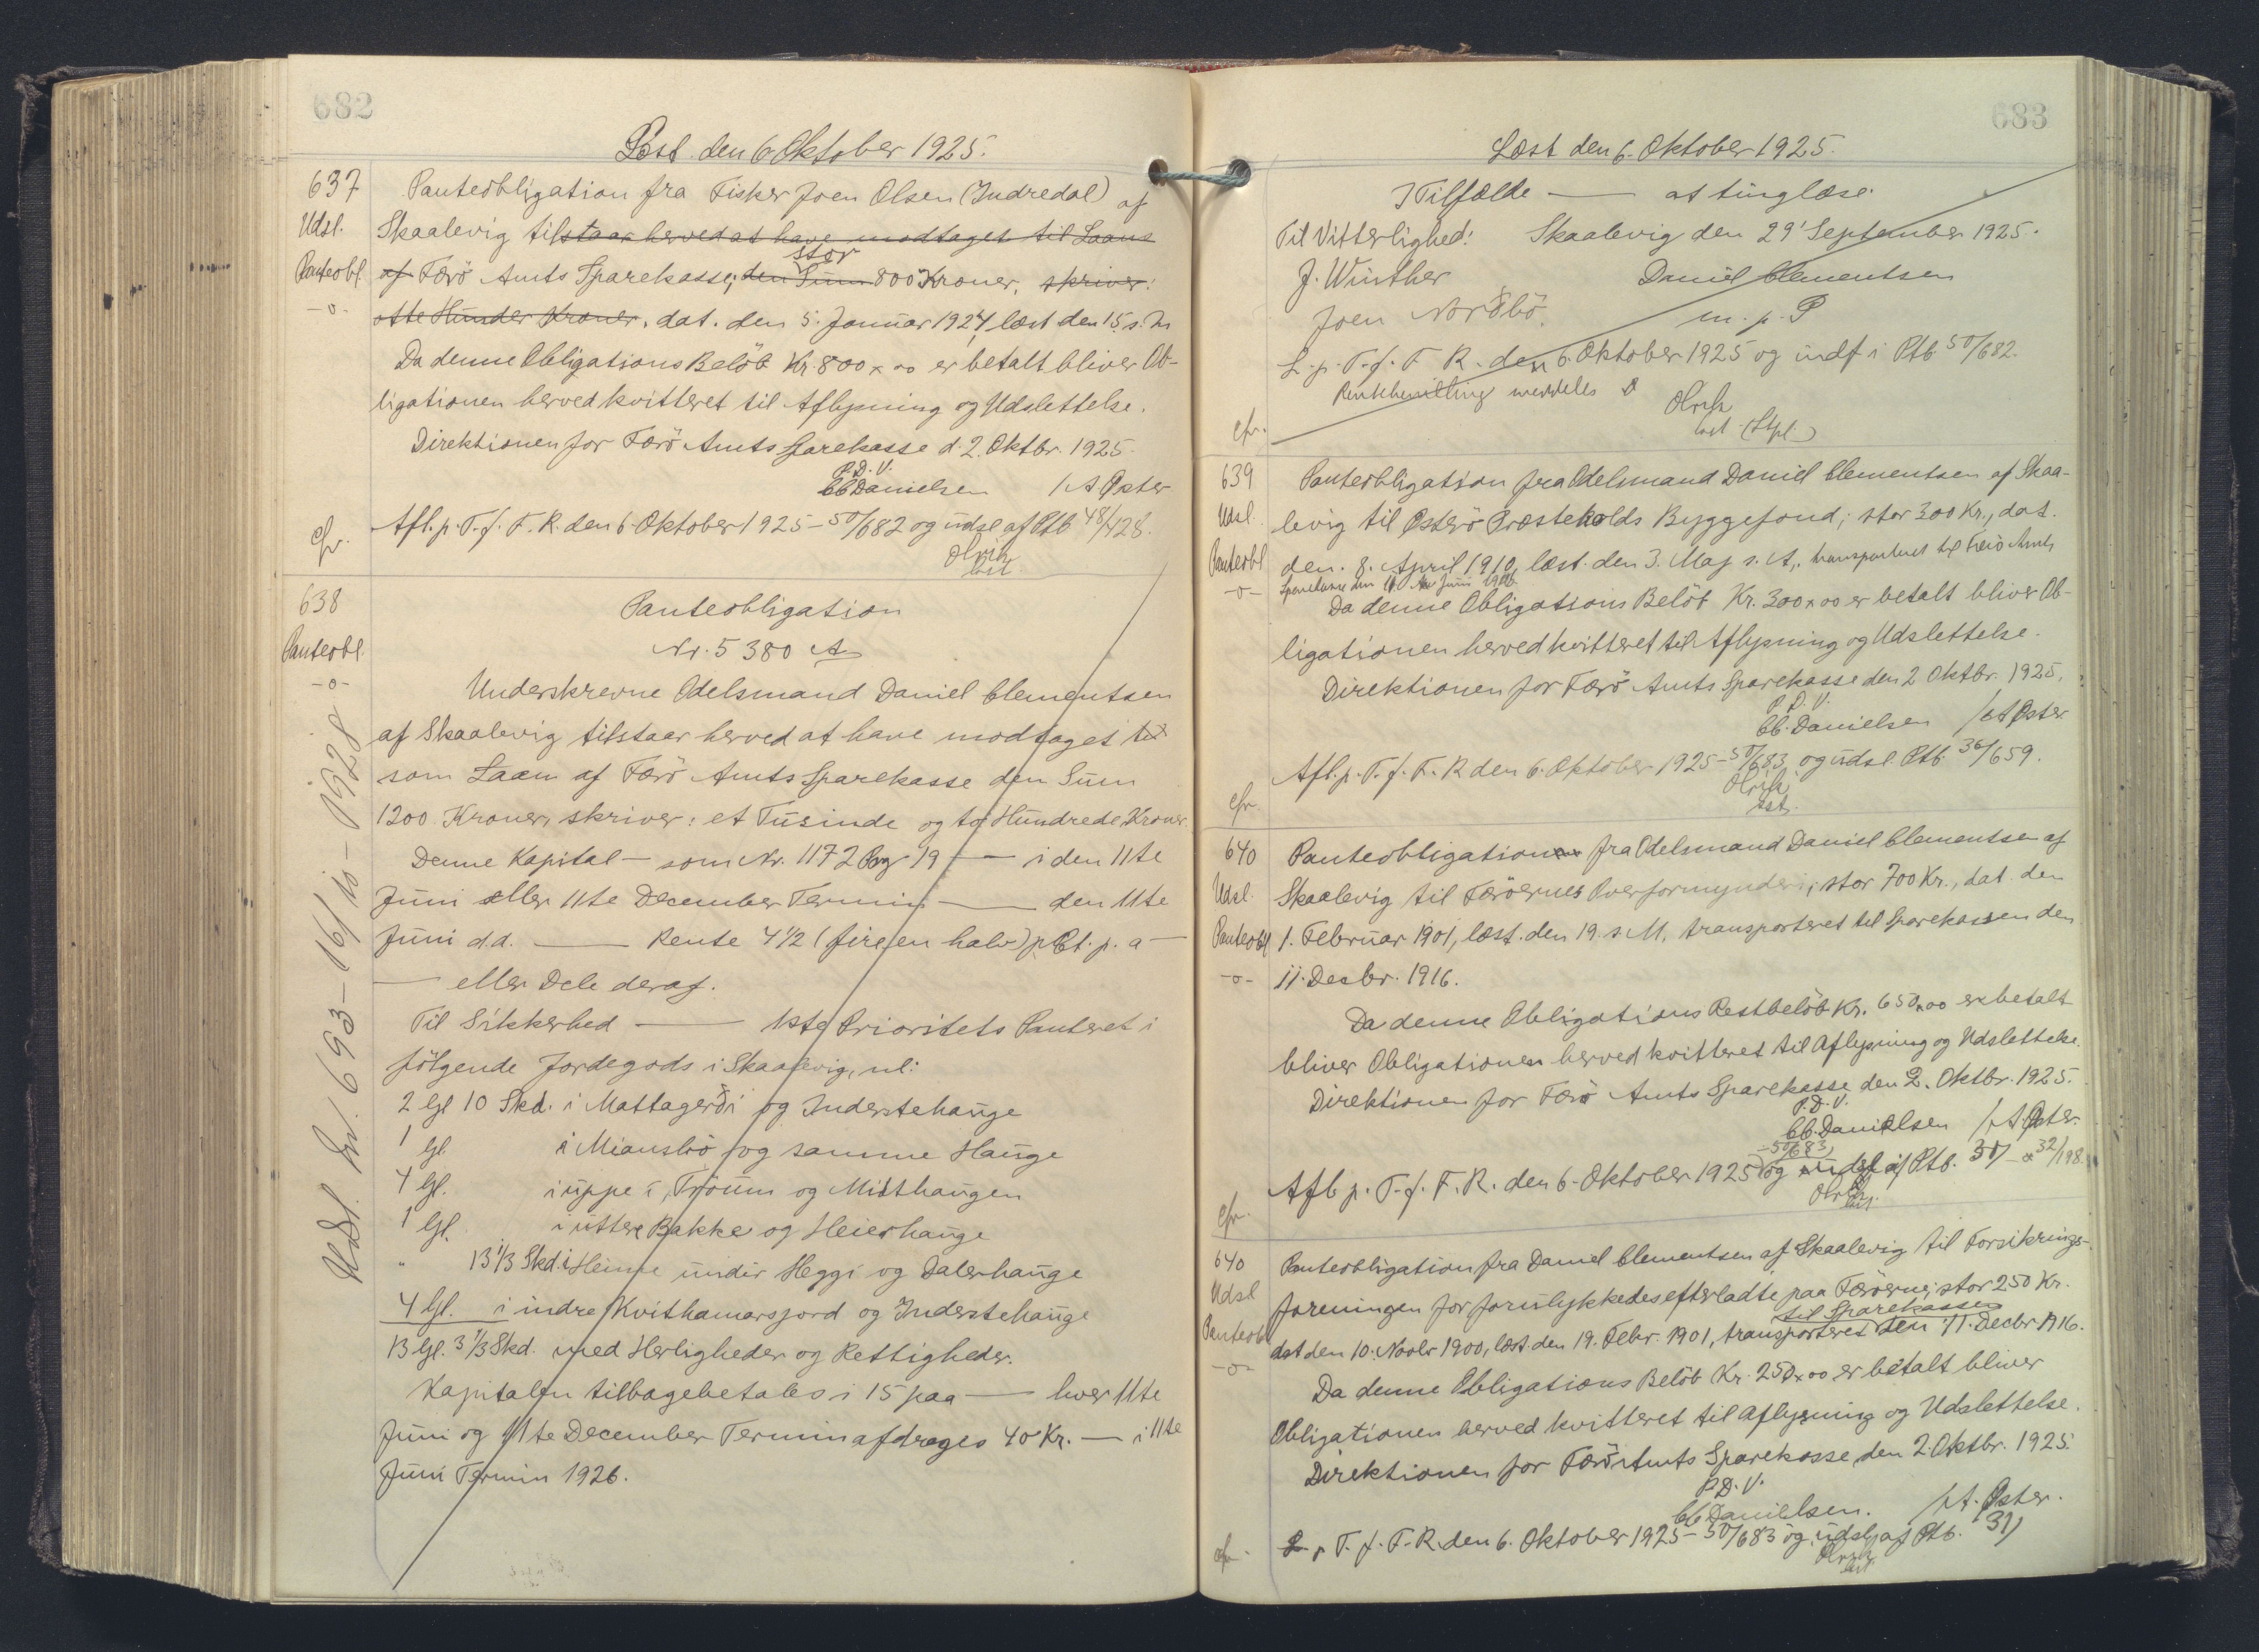 682
Læst den 6 Oktober 1925.
637
Udsl.
Panteobl
-o-
Panteobligation fra Fisker Joen Olsen (Indredal) af
Skaalevig tilstaar herved at have modtaget til Laans
stor
af Færö Amts Sparekasse; den Sum 800 Kroner, skriver:
otte Hunder Kroner, dat. den 5. Januar 1924, læst den 15. s. M
Da denne Obligations Belöb Kr. 800 x 00 er betalt bliver Ob-
ligationen herved kvitteret til Aflysning og Udslettelse.
Direktionen for Færö Amts Sparekasse d. 2. Oktbr. 1925.
P.D.V.
CC Danielsen / A Öster
cfr. Afl. p. T. f. F. R. den 6 Oktober 1925 - 50/682 og udsl af Ptb 48/428.
638
Panteobl.
-o-
Udsl. Nr. 693 - 16/10 - 1928
Panteobligation
Nr. 5380 A
Underskrevne Odelsmand Daniel Clementsen
af Skaalevig tilstaar herved at have modtaget til
som Laan af Færö Amts Sparekasse den Sum
1200 Kroner, skriver: et Tusinde og to Hundrede Kroner
Denne Kapital — som Nr. 1172 Pag 19 — i den 11te
Juni eller 11te December Termin — den 11te
Juni d.d. — Rente 4 1/2 (fire en halv) pCt. p. a —
— eller Dele deraf.
Til Sikkerhed — 1ste Prioritets Panteret i
fölgende Jordegods i Skaalevig, nl:
2 Gl 10 Skd. i Mattagerði og Inderstehauge
1 Gl. i Miansbö og samme Hauge
4 Gl. i uppe i Tröum og Midthaugen
1 Gl. i uttere Bakke og Heierhauge
" 13 1/3 Skd. i Heimе undir Heggi og Dalerhauge
4 Gl. i indre Kvithamarsjord og Inderstehauge
13 Gl. 3 1/3 Skd. med Herligheder og Rettigheder.
Kapitalen tilbagebetales i 15 paa — hver 11te
Juni og 11te December Termin afdrages 40 Kr. — i 11te
Juni Termin 1926.
683
Læst den 6. Oktober 1925.
I Tilfælde — at tinglæse.
Til Vitterlighed: Skaalevig den 29' September 1925.
J. Winther Daniel Clementsen
Joen Norðbö. m. p. P
L. p. T. f. F R. den 6. Oktober 1925 og indf i Ptb 50/682.
meddeles
cfr.
639
Udsl.
Panteobl
-o-
Panteobligation fra Odelsmand Daniel Clementsen af Skaa-
levig til Østerö Præstekalds Byggefond; stor 300 Kr., dat.
den. 8. April 1910, læst. den 3. Maj s. A., transporteret til Færö Amts
Sparekasse den 11. Juni 1916
Da denne Obligations Belöb Kr. 300 x 00 er betalt bliver Ob-
ligationen herved kvitteret til Aflysning og Udslettelse.
Direktionen for Færö Amts Sparekasse den 2 Oktbr. 1925.
P.D.V.
CC. Danielsen / A Öster
Afl. p. T. f. F. R den 6. Oktober 1925 - 50/683 og udsl. Ptb. 36/659.
cfr.
640
Udsl.
Panteobl
-o-
Panteobligation fra Odelsmand Daniel Clementsen af
Skaalevig til Færöernes Overformynderi; stor 700 Kr., dat. den
1. Februar 1901, læst. den 19. s. M, transporteret til Sparekassen den
11. Decbr. 1916.
Da denne Obligations Restbelöb Kr. 650,00 er betalt
bliver Obligationen herved kvitteret til Aflysning og Udslettelse.
Direktionen for Færö Amts Sparekasse den 2. Oktbr. 1925.
P.D.V.
CC. Danielsen / A. Öster.
- 50/683)
Afl. p. T. f. F. R. den 6. Oktober 1925 og udsl af Ptb. 31/ - 32/198.
cfr.
640
Udsl
Panteobl
-o-
Panteobligation fra Daniel Clementsen af Skaalevig til Forsikrings-
foreningen for forulykkedes efterladte paa Færöerne; stor 250 Kr.
til Sparekassen
dat den 10. Novbr 1900, læst. den 19. Febr. 1901, transporteret den 11. Decbr 1916.
Da denne Obligations Belöb Kr. 250 x 00 er betalt bliver
Obligationen herved kvitteret til Aflysning og Udslettelse.
Direktionen for Færö Amts Sparekasse den 2. Oktbr. 1925.
P.D.V.
CC Danielsen. / A. Öster.
cfr. L. p T. f. F. R. den 6. Oktober 1925 - 50/683 og udsl. af Ptb. 31)